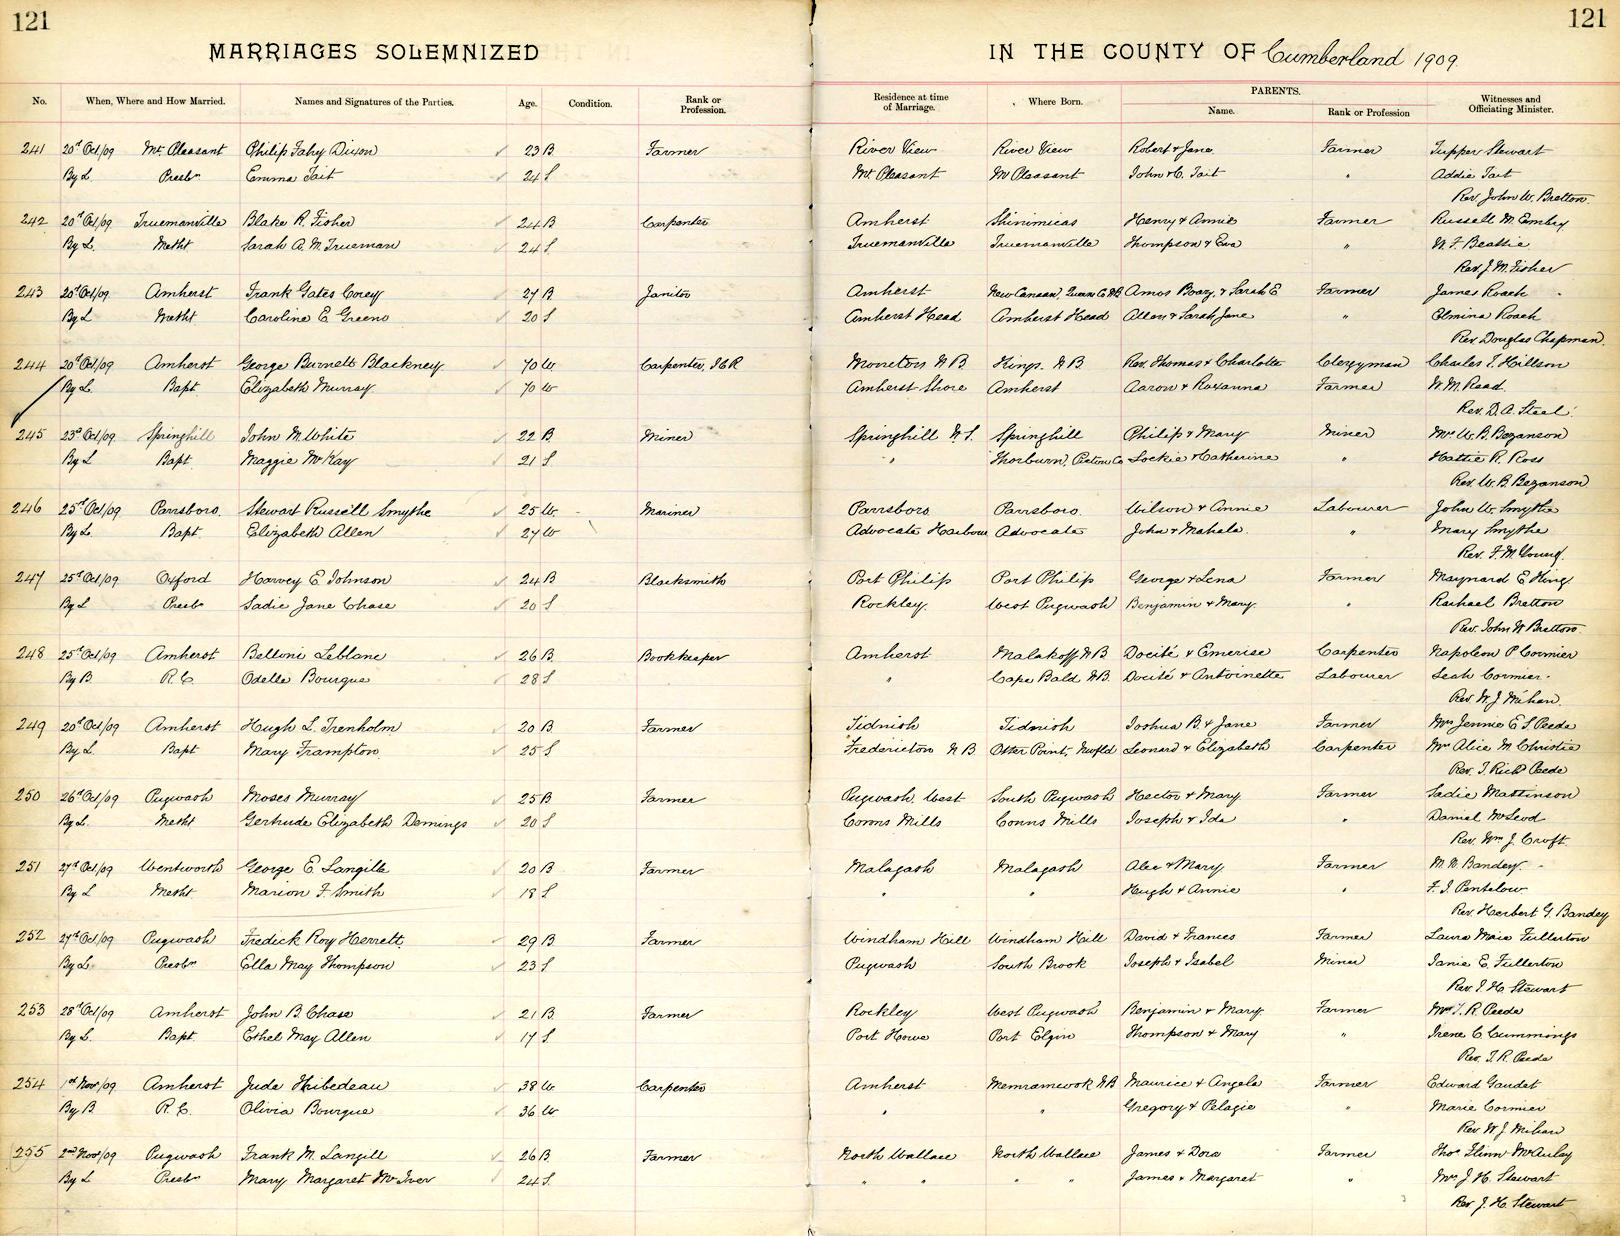 121
121
MARRIAGES SOLEMNIZED
IN THE COUNTY OF Cumberland 1909.
No. When, Where and How Married. Names and Signatures of the Parties. Age. Condition. Rank or Profession. Residence at time of Marriage. Where Born. PARENTS. Name. Rank or Profession Witnesses and Officiating Minister.
241 20th Oct/09 Mt. Pleasant Philip Fahy Dixon 23 B. Farmer River View River View Robert & Jane Farmer Tupper Stewart
By L. Presbn Emma Tait 24 S Mt Pleasant Mt Pleasant John & C. Tait " Addie Tait
Rev. John W. Bretton.
242 20th Oct/09 Truemanville Blake R. Fisher 24 B Carpenter Amherst Shinimicas Henry & Annie Farmer Russell M. Embry
By L. Metht Sarah A. M. Trueman 24 S. Truemanville Truemanville Thompson & Eva " W. F. Beattie
Rev. J. M. Fisher
243 20th Oct/09. Amherst Frank Gates Corey 27 B Janitor Amherst New Canaan, Queens Co NB Amos Boaz, & Sarah E Farmer James Roach
By L Metht Caroline E. Greeno 20 S Amherst Head Amherst Head Allen & Sarah Jane " Elmina Roach
Rev. Douglas Chapman.
244 20th Oct/09 Amherst George Burnett Blackney 70 W. Carpenter, ICR Moncton N B Kings. N B Rev. Thomas & Charlotte Clergyman Charles T. Hillson
By L. Bapt. Elizabeth Murray 70 W Amherst Shore Amherst Aaron & Roxanna Farmer W. M. Read.
Rev. D. A. Steel.
245 23d Oct/09. Springhill John M. White 22 B. Miner Springhill N. S. Springhill Philip & Mary Miner Mrs W. B. Bezanson
By L Bapt. Maggie McKay 21 S " Thorburn, Pictou Co Lockie & Catherine " Hattie R. Ross
Rev. W. B. Bezanson
246 25th Oct/09. Parrsboro. Stewart Russell Smythe 25 W. Mariner Parrsboro Parrsboro. Wilson & Annie Labourer John W. Smythe
By L. Bapt. Elizabeth Allen 27 W Advocate Harbour Advocate John & Mahala. " Mary Smythe
Rev. F. M. Young.
247 25th Oct/09 Oxford Harvey E. Johnson 24 B Blacksmith Port Philip Port Philip George & Lena Farmer Maynard E King
By L Presbn Sadie Jane Chase 20 S Rockley. West Pugwash Benjamin & Mary. " Rachael Bretton
Rev. John W Bretton.
248 25th Oct/09 Amherst Belloni Leblanc 26 B. Bookkeeper Amherst Malakoff N B Docité & Emerise Carpenter Napoleon P Cormier
By B. R. C. Odelle Bourque 28 S " Cape Bald N B. Docité & Antoinette Labourer Leah Cormier.
Rev. W. J. Mihan.
249 20th Oct/09 Amherst Hugh L. Trenholm 20 B Farmer Tidnish Tidnish Joshua B. & Jane Farmer Mrs Jennie E. S. Peede
By L. Bapt Mary Frampton. 25 S Fredericton N B. Otter Point, Newfld Leonard & Elizabeth Carpenter Mrs Alice M. Christie
Rev. T. Richd Peede
250 26th Oct/09 Pugwash Moses Murray 25 B Farmer Pugwash. West South Pugwash Hector & Mary Farmer Sadie Mattinson
By L. Metht Gertrude Elizabeth Demings 20 S Conns Mills Conns Mills Joseph & Ida " Daniel McLeod
Rev. Wm J. Croft.
251 27th Oct/09 Wentworth George E. Langille 20 B Farmer Malagash Malagash Alec & Mary Farmer M. N. Bandey.
By L Metht. Marion F. Smith 18 S " " Hugh & Annie " F. J. Pentelow
Rev. Herbert G. Bandey
252 27th Oct/09 Pugwash Fredick Roy Herrett. 29 B Farmer Windham Hill Windham Hill David & Frances Farmer Laura Maie Fullerton
By L Presbn Ella May Thompson 23 S Pugwash South Brook Joseph & Isabel Miner Janie E. Fullerton
Rev. J. H. Stewart
253 28th Oct/09 Amherst John B. Chase 21 B. Farmer Rockley West Pugwash Benjamin & Mary Farmer Mrs T. R. Peede
By L. Bapt. Ethel May Allen 17 S Port Howe Port Elgin Thompson & Mary " Irene C Cummings
Rev. T. R. Peede
254 1st Nov/09 Amherst Jude Thibedeau 38 W Carpenter Amherst Memramcook N B Maurice & Angele Farmer Edward Gaudet
By B R. C. Olivia Bourque 36 W " " Gregory & Pelagie " Marie Cormier
Rev. W J. Mihan
255 2nd Nov/09 Pugwash Frank M. Langill 26 B. Farmer North Wallace North Wallace James & Dora Farmer Thos Flinn McAulay
By L Presbn Mary Margaret McIver 24 S. " " " " James & Margaret " Mrs J. H. Stewart
Rev J. H. Stewart